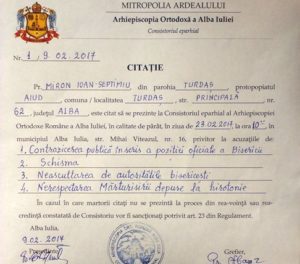 MITROPOLIA ARDEALULUI
Arhiepiscopia Ortodoxă a Alba Iuliei
Consistoriul eparhial
Nr. 1, 9.02.2017
CITAȚIE
Pr. MIRON IOAN SEPTIMIU, din parohia TURDAȘ, protopopiatul
AIUD, comuna / localitatea TURDAȘ, str. PRINCIPALĂ, nr.
62, județul ALBA, este citat să se prezinte la Consistoriul eparhial al Arhiepiscopiei
Ortodoxe Române a Alba Iuliei, în calitate de pârât, în ziua de 23.02.2017 la ora 10, în
municipiul Alba Iulia, str. Mihai Viteazul, nr. 16, privitor la acuzațiile de
1. Contrazicerea publică în scris a poziției oficiale a Bisericii
2. Schisma
3. Neascultarea de autoritățile bisericești
4. Nerespectarea Mărturisirii depuse la hirotonie
În cazul în care martorii citați nu se prezintă la proces din rea-voință sau rea-
credință constatată de Consistoriu vor fi sancționați potrivit art. 23 din Regulament.
Alba Iulia,
9.02.2017
Președinte,
Grefier,